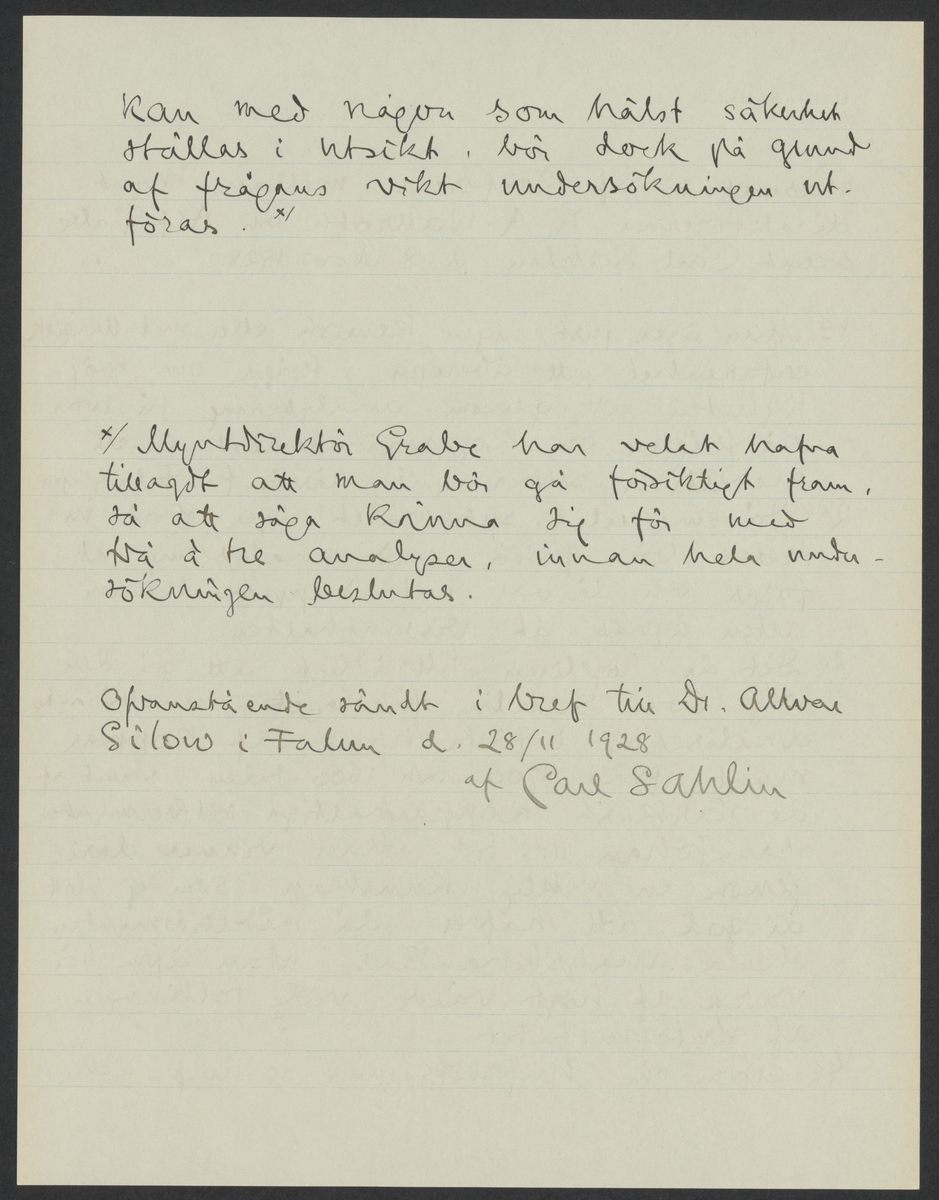 kan med någon som hälst säkerhet
ställas i utsikt, bör dock på grund
af frågans vikt undersökningen ut-
föras. x/
x/ Myntdirektör Grabe har velat hafva
tillagdt att man bör gå försiktigt fram,
så att säga känna sig för med
två à tre analyser, innan hela under-
sökningen beslutas.
Ofvanstående sändt i bref till Dr. Allvar
Silow i Falun d. 28/11 1928
af Carl Sahlin